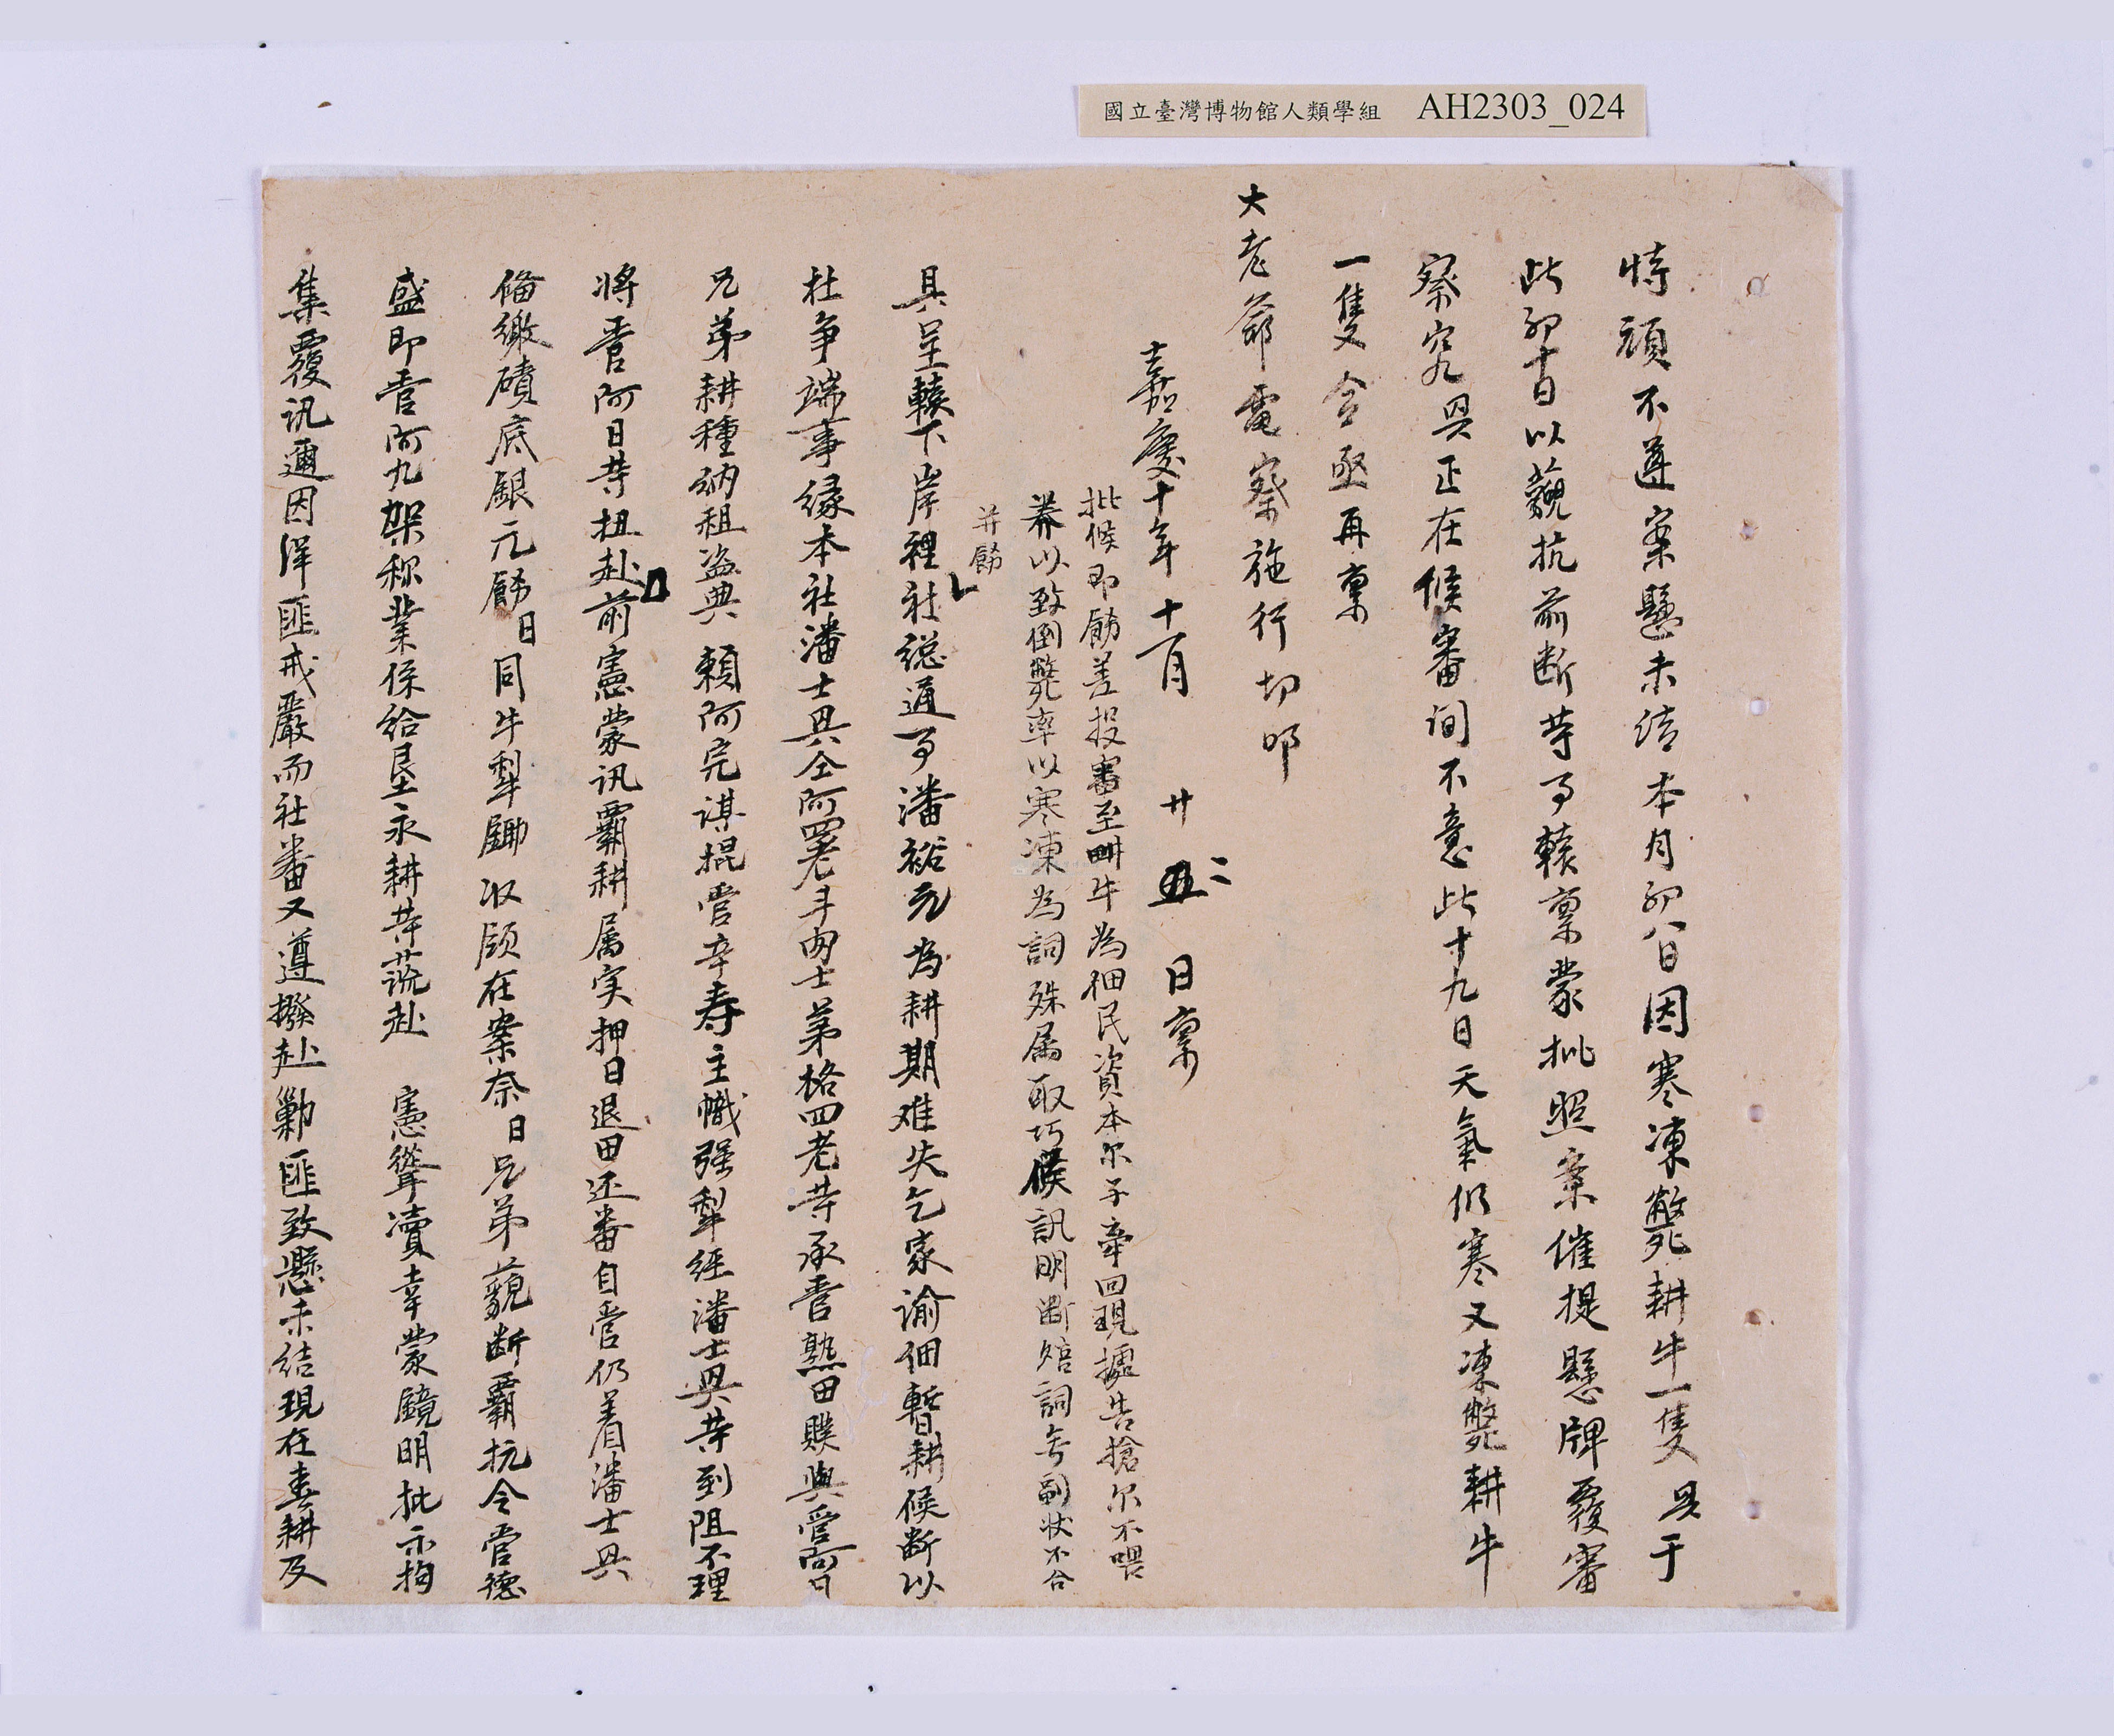 國立臺灣博物館人類學組 AH2303_024
恃頑不遵案懸未結本月初八日因寒凍斃耕牛一隻具于
此初十日以藐抗前断等事轅稟蒙批照案催提懸牌覆審
察究具正在候審间不意此十九日天氣仍寒又凍斃耕牛
一隻合亟再稟
大老爺電察施行切叩
嘉慶十年十一月廿二日稟
批候即飭差投審至畊牛為佃民資本尔子牽回現據告搶尔不喂
养以致倒斃率以寒凍為詞殊属取巧候訊明断結詞無副状不合
并飭
具呈轅下岸裡社総通事潘裕元為耕期难失乞家諭佃暫耕候断以
杜争端事緣本社潘士興仝阿四老斗肉士第格四老等承管熟田贌與管阿日
兄弟耕種納租盗典 賴阿完謀掍管辛寿主幟强犁經潘士興等到阻不理
将管阿日等扭赴前憲蒙讯覇耕属实押日退田还番自管仍着潘士興
俻繳磧底銀元飭日同牛犁鋤收領在案奈日兄弟藐断覇抗令管德
盛即管阿九架称業係給垦永耕等謊赴 憲聳瀆幸蒙鏡明批示拘
集覆讯邇因洋匪戒嚴而社番又遵撥赴勦匪致懸未结現在春耕及